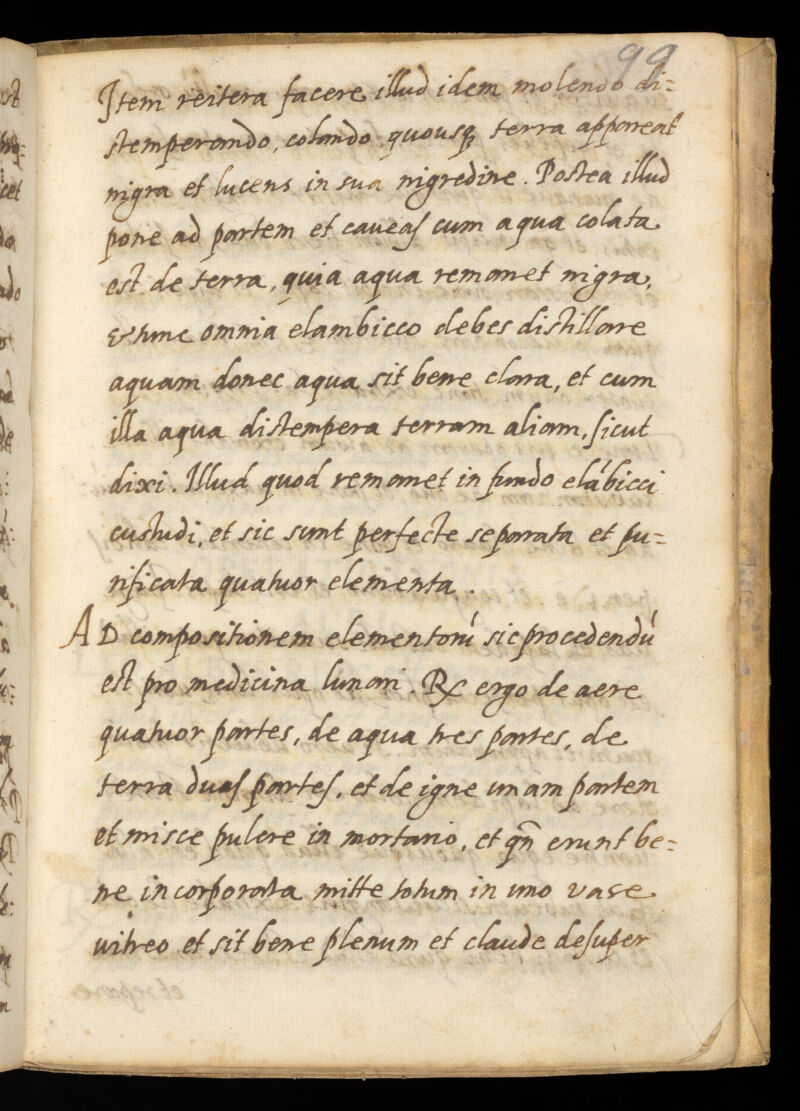 99
Item reitera facere illud idem molendo di=
stemperando, colando quousq; terra appareat
nigra et lucens in sua nigredine. Postea illud
pone ad partem et caveas cum aqua colata
est de terra, quia aqua remanet nigra,
& tunc omnia elambicco debes distillare
aquam donec aqua sit bene clara, et cum
illa aqua distempera terram aliam, sicut
dixi. Illud quod remanet in fundo elábicci
custudi, et sic sunt perfecte separata et pu=
rificata quatuor elementa.
AD compositionem elementorú sic procedendú
est pro medicina lunari. ℞ ergo de aere
quatuor partes, de aqua tres partes, de
terra duas partes, et de igne unam partem
et misce pulere in mortario, et qñ erunt be=
ne incorporata mitte totum in uno vase
vitreo et sit bene plenum et claude desuper